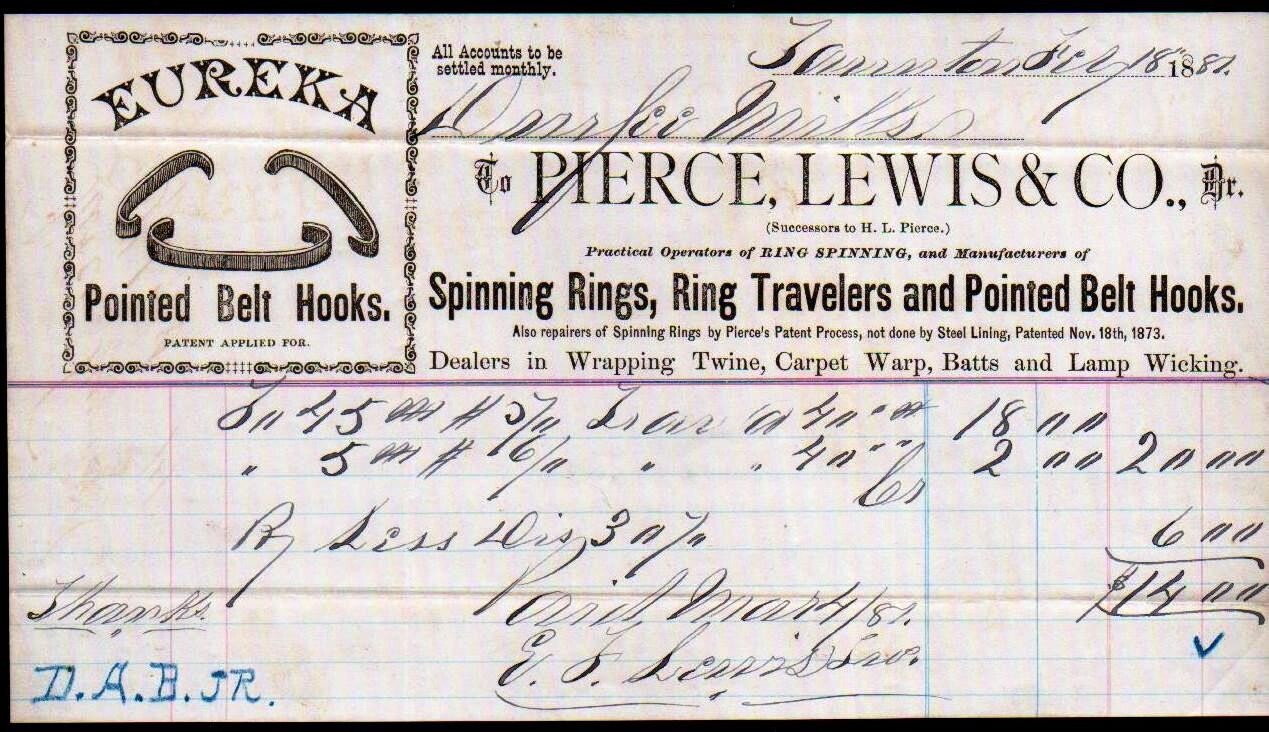 EUREKA
Pointed Belt Hooks.
PATENT APPLIED FOR.
All Accounts to be
settled monthly.
Taunton Feb 18" 1881.
Durfee Mills
To PIERCE, LEWIS & CO., Dr.
(Successors to H. L. Pierce.)
Practical Operators of RING SPINNING, and Manufacturers of
Spinning Rings, Ring Travelers and Pointed Belt Hooks.
Also repairers of Spinning Rings by Pierce's Patent Process, not done by Steel Lining, Patented Nov. 18th, 1873.
Dealers in Wrapping Twine, Carpet Warp, Batts and Lamp Wicking.
To 45 M # 5/0 Trav @ 40 18 00
" 5 M # 6/0 " " 40 2 00 20 00
Cr
By Less Dis 30% 6 00
$14 00
Thanks. Paid Mar 4/81.
E. F. Lewis
D.A.B. JR.